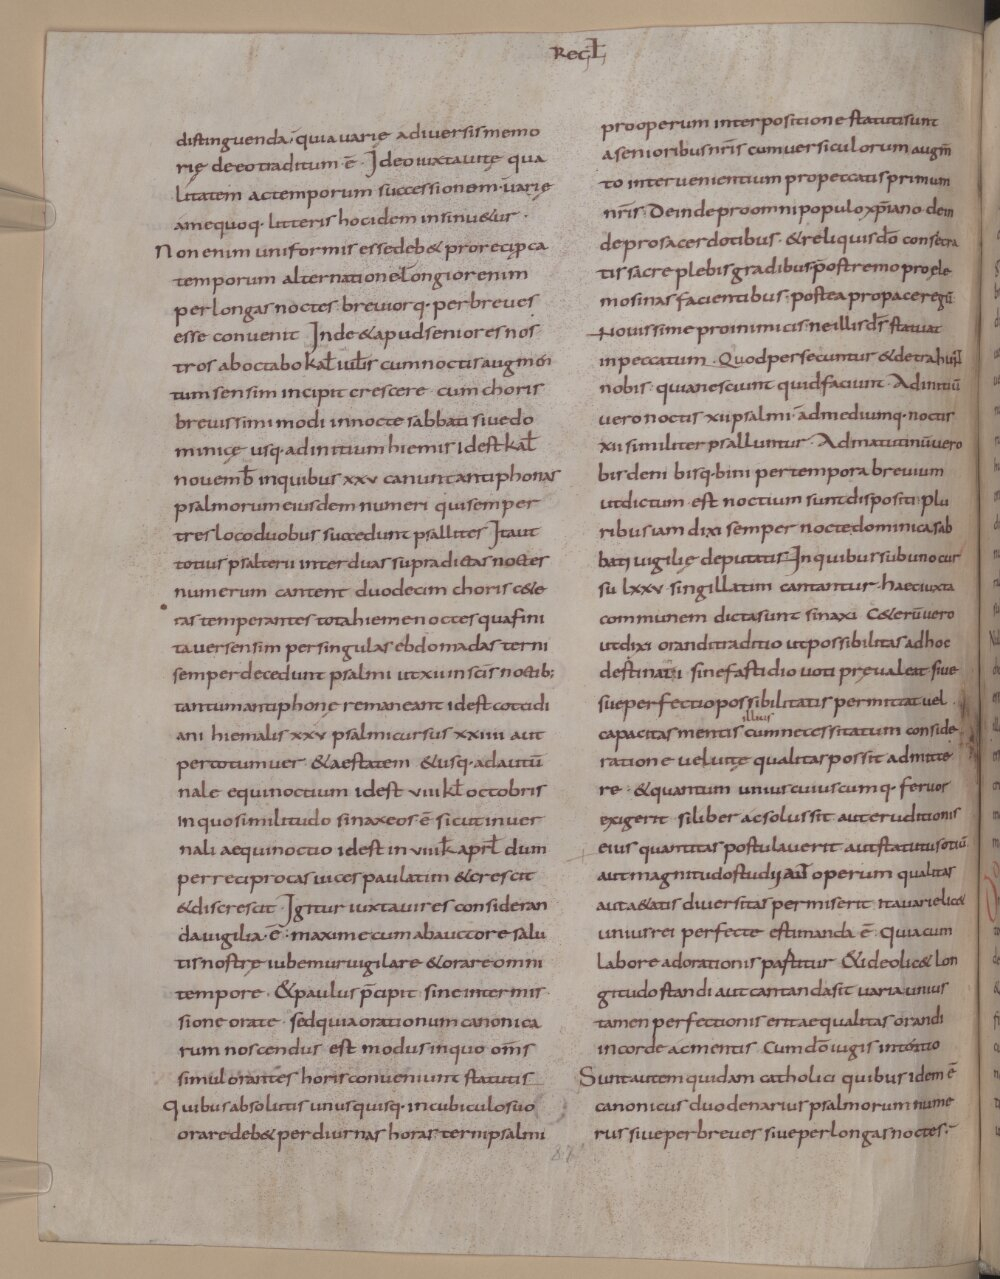 Regl̄
distinguenda; quia varie a diversis memo
rię de eo traditum ē. Ideo iuxta vitę qua
litatem ac temporum successionem. varię
aneq uoq. litteris hoc idem insinuetur.
Non enim uniformis esse debet pro recip̄ca
temporum alternatione. longior enim
per longas noctes. brevior q. per breves
esse convenit. Inde & apud seniores nos
tros ab octabo kal̄ iul̄is cum noctis augmen
tum sensim incipit crescere. cum choris
brevissimi modi in nocte sabbati sive do
minicę usq. ad initium hiemis idest kal̄
novemb̄ inquibus xxv canunt antiphonas
psalmorum eiusdem numeri qui semper
tres loco duobus succedunt psallites. Itaut
totius psalterii inter duas supradictas noctes
numerum cantent duodecim choris cete
ras temperantes tota hieme noctes qua fini
ta ver sensim per singulas ebdomadas terni
semper decedunt psalmi ut xii in sc̄is noctib;
tantum antiphonę remaneant idest cottidi
ani hiemalis xxv psalmi cursus xxiiii aut
per totum ver & aestatem & usq. ad autū
nale equinoctium idest viii kl̄ octobris
In quo similitudo sinaxeos ē sicut in ver
nali aequinoctio idest in viiii k̄ apr̄l dum
per reciprocas vices paulatim & crescit
& discrescit. Igitur iuxta vires consideran
da vigilia. ē. maxime cum ab auctore salu
tis nostrę iubemur vigilare & orare omni
tempore. & paulus p̄cipit. sine intermis
sione orate. sed quia orationum canonica
rum noscendus est modus inquo om̄s
simul orantes horis conveniunt statutis
Quibus absolutis unusquisq. in cubiculo suo
orare debet per diurnas horas terni psalmi
pro operum interpositione statuti sunt
a senioribus nr̄is cum versiculorum augm̄
to intervenientium pro peccatis primum
nr̄is. Deinde pro omni populo xp̄iano. dein
de pro sacerdotibus. & reliquis dō consecra
tis sacre plebis gradibus. postremo pro ele
mosinas facientibus. postea pro pace regū.
Novissime pro inimicis. ne illis ds̄ statuat
in peccatum. Quod persecuntur & detrahunt
nobis. quia nesciunt quid faciunt. Ad initiū
vero noctis xii psalmi. ad mediumq. noctis
xii similiter psalluntur. Ad matutinū vero
bis deni bisq. bini per tempora brevium
ut dictum est noctium sunt dispositi. plu
ribus iam dixi semper nocte dominica. sab
bati vigilię deputatis. In quibus sub uno cur
su lxxv singillatim cantantur. haec iuxta
communem dicta sunt sinaxi. Ceterū vero
ut dixi orandi traditio ut possibilitas ad hoc
destinati sine fastidio voti prevaleat. sive
sue perfectio possibilitatis permittat. vel
illius
capacitas mentis cum necessitatum conside
ratione vel vitę qualitas possit admitte
re. & quantum uniuscuiuscumq. fervor
exigerit si liber ac solus sit. aut eruditionis
eius quantitas postulaverit aut status otiū
aut magnitudo studii aut operum qualitas
aut aetatis diversitas permiserit. Ita varie licet
unius rei perfecte estimanda ē. Quia cum
labore ad orationis partitur. & ideo licet lon
gitudo standi aut cantandi sit varia. unius
tamen perfectionis erit aequalitas orandi
in corde ac mentis. Cum dō iugis intentio
Sunt autem quidam catholici quibus idem ē
canonicus duodenarius psalmorum nume
rus sive per breves sive per longas noctes.